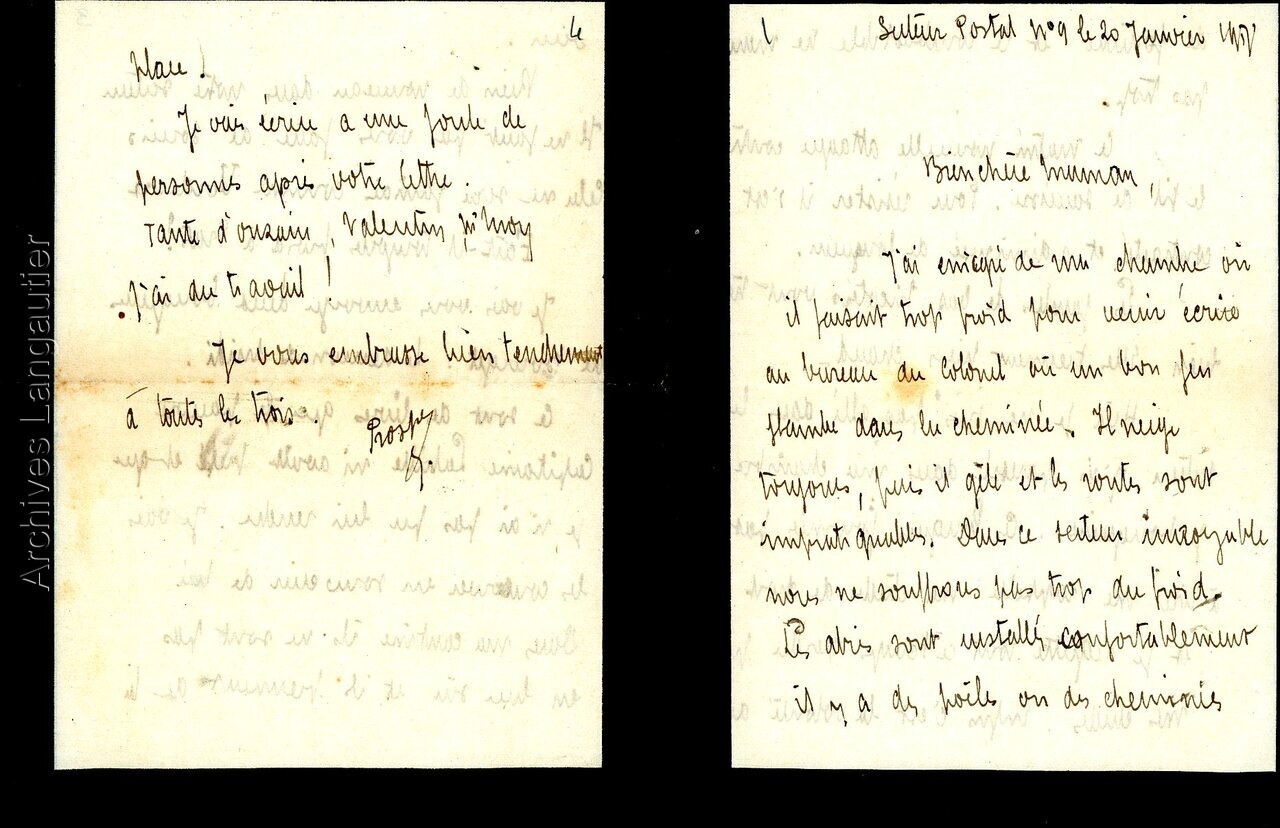 4
place !
Je vais écrire a une foule de
personnes après votre lettre.
Tante d'onzain, Valentin,
J'ai du travail !
Je vous embrasse bien tendrement
à toutes les trois.
Prosper
1
Secteur Postal N°9 le 20 Janvier
Bien chère maman,
J'ai émigré de ma chambre où
il faisait trop froid pour venir écrire
au bureau du colonel où un bon feu
flambe dans la cheminée. Il neige
toujours, puis il gèle et les routes sont
impratiquables. Dans ce secteur
nous ne souffrons pas trop du froid.
Les abris sont installés confortablement
il y a des poêles ou des cheminées
Archives Langautier